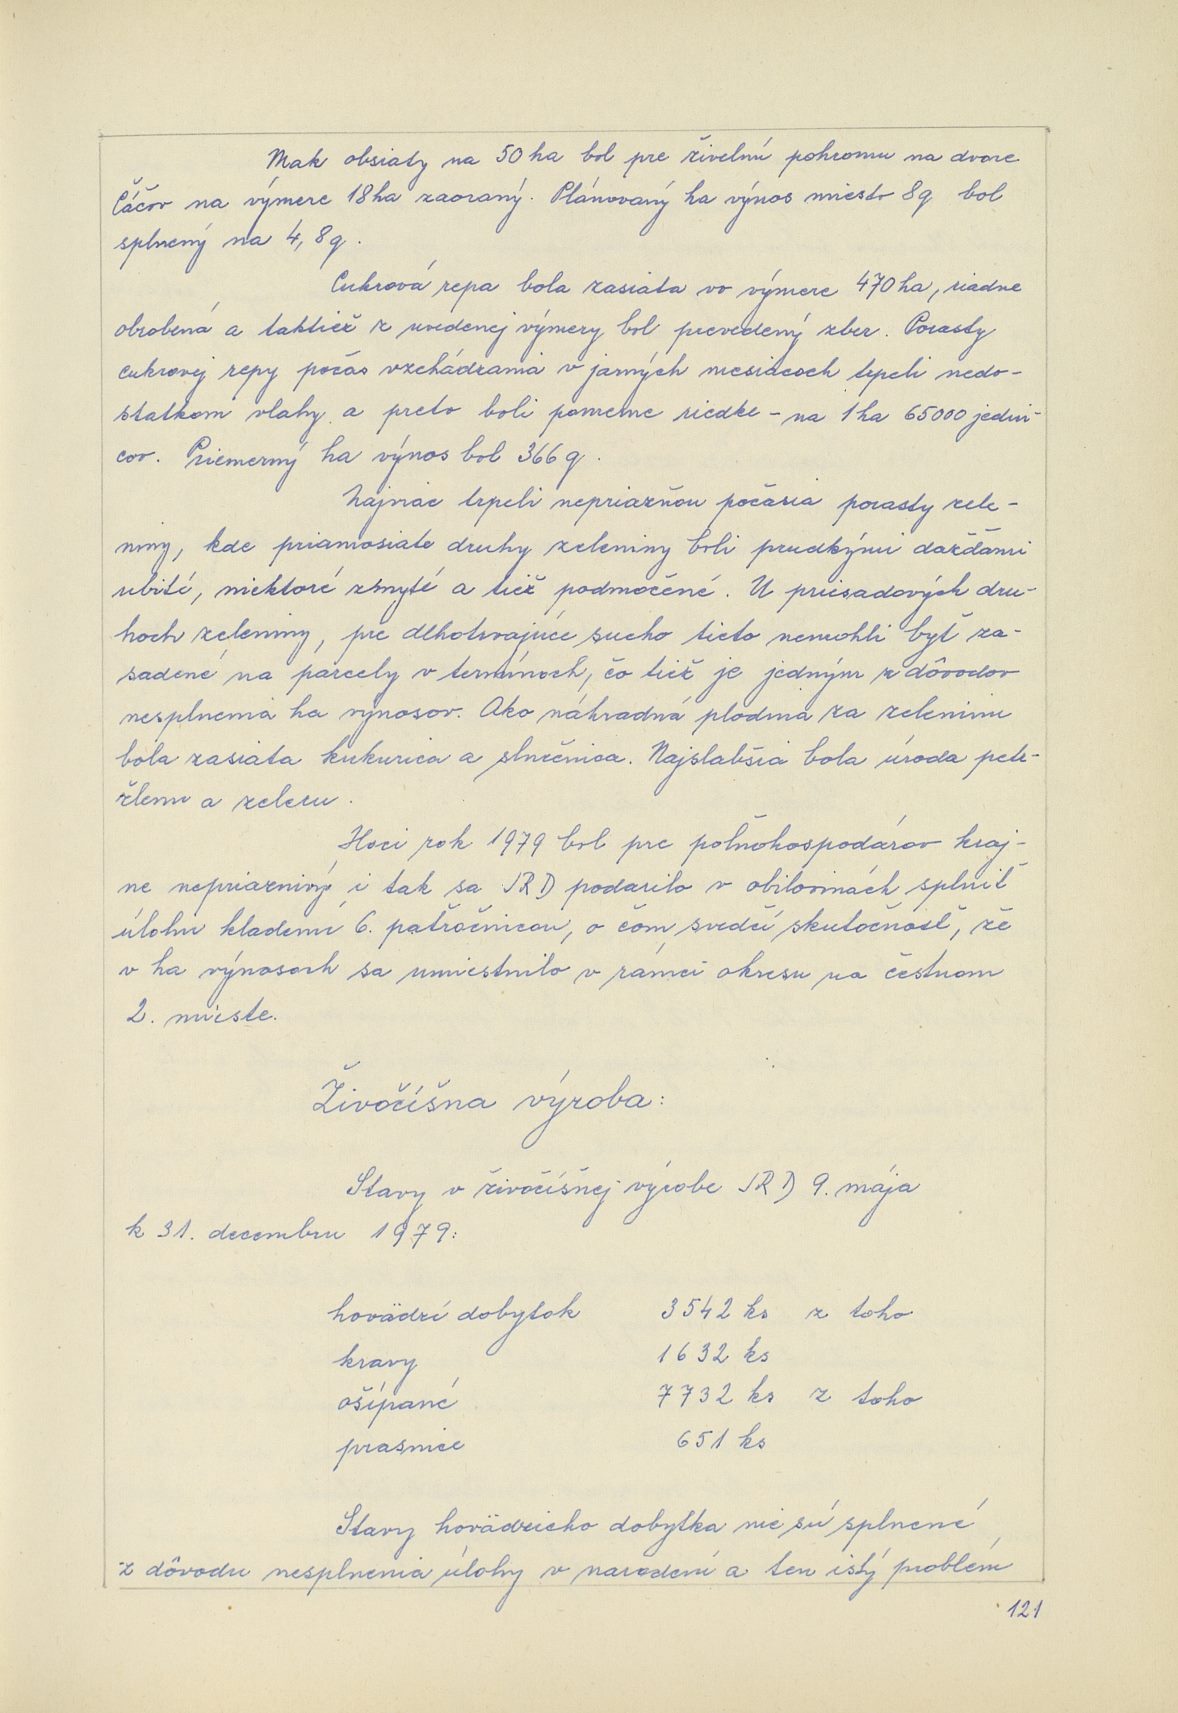 Mak obsiaty na 50 ha bol pre živelnú pohromu na dvore
Čáčov na výmere 18 ha zaoraný. Plánovaný ha výnos miesto 8 q bol
splnený na 4,8 q.
Cukrová repa bola zasiata vo výmere 470 ha, riadne
obrobená a taktiež z uvedenej výmery bol prevedený zber. Porasty
cukrovej repy počas vzchádzania v jarných mesiacoch trpeli nedo-
statkom vlahy a preto boli pomerne riedke - na 1 ha 65000 jedin-
cov. Priemerný ha výnos bol 366 q.
Najviac trpeli nepriazňou počasia porasty zele-
niny, kde priamosiate druhy zeleniny boli prudkými dažďami
ubité, niektoré zmyté a tiež podmočené. U priesadových dru-
hoch zeleniny, pre dlhotrvajúce sucho tieto nemohli byť za-
sadené na parcely v termínoch, čo tiež je jedným z dôvodov
nesplnenia ha výnosov. Ako náhradná plodina za zeleninu
bola zasiata kukurica a slnečnica. Najslabšia bola úroda petr-
žlenu a zeleru.
Hoci rok 1979 bol pre poľnohospodárov kraj-
ne nepriaznivý i tak sa JRD podarilo v obilovinách splniť
úlohu kladenú 6. päťročnicou, o čom svedčí skutočnosť, že
v ha výnosoch sa umiestnilo v rámci okresu na čestnom
2. mieste.
Živočíšna výroba:
Stavy v živočíšnej výrobe JRD 9. mája
k 31. decembru 1979:
hovädzí dobytok 3542 ks z toho
kravy 1632 ks
ošípané 7732 ks z toho
prasnice 651 ks
Stavy hovädzieho dobytka nie sú splnené
z dôvodu nesplnenia úlohy v narodení a ten istý problém
121